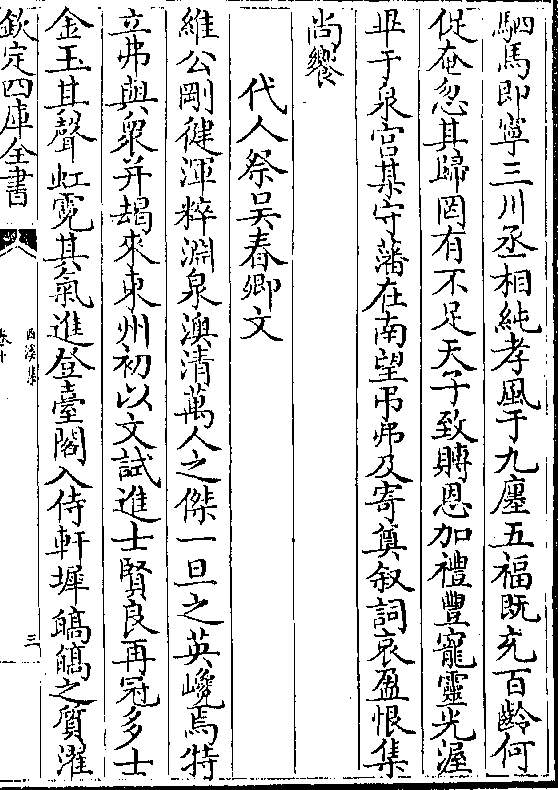 駟馬即寧三川丞相純孝風于九廛五福既充百齡何
促奄忽其歸罔有不足天子致賻恩加禮豐寵靈光渥
畢于泉宫某守藩在南望弔弗及寄奠叙詞哀盈恨集
尚饗
代人祭吴春卿文
維公剛健渾粹淵泉澳清萬人之傑一旦之英巉焉特
立弗與衆并朅來東州初以文試進士賢良再冠多士
金玉其聲虹霓其氣進登臺閣入侍軒墀皜皜之質濯
欽定四庫全書
西溪集
卷十
三